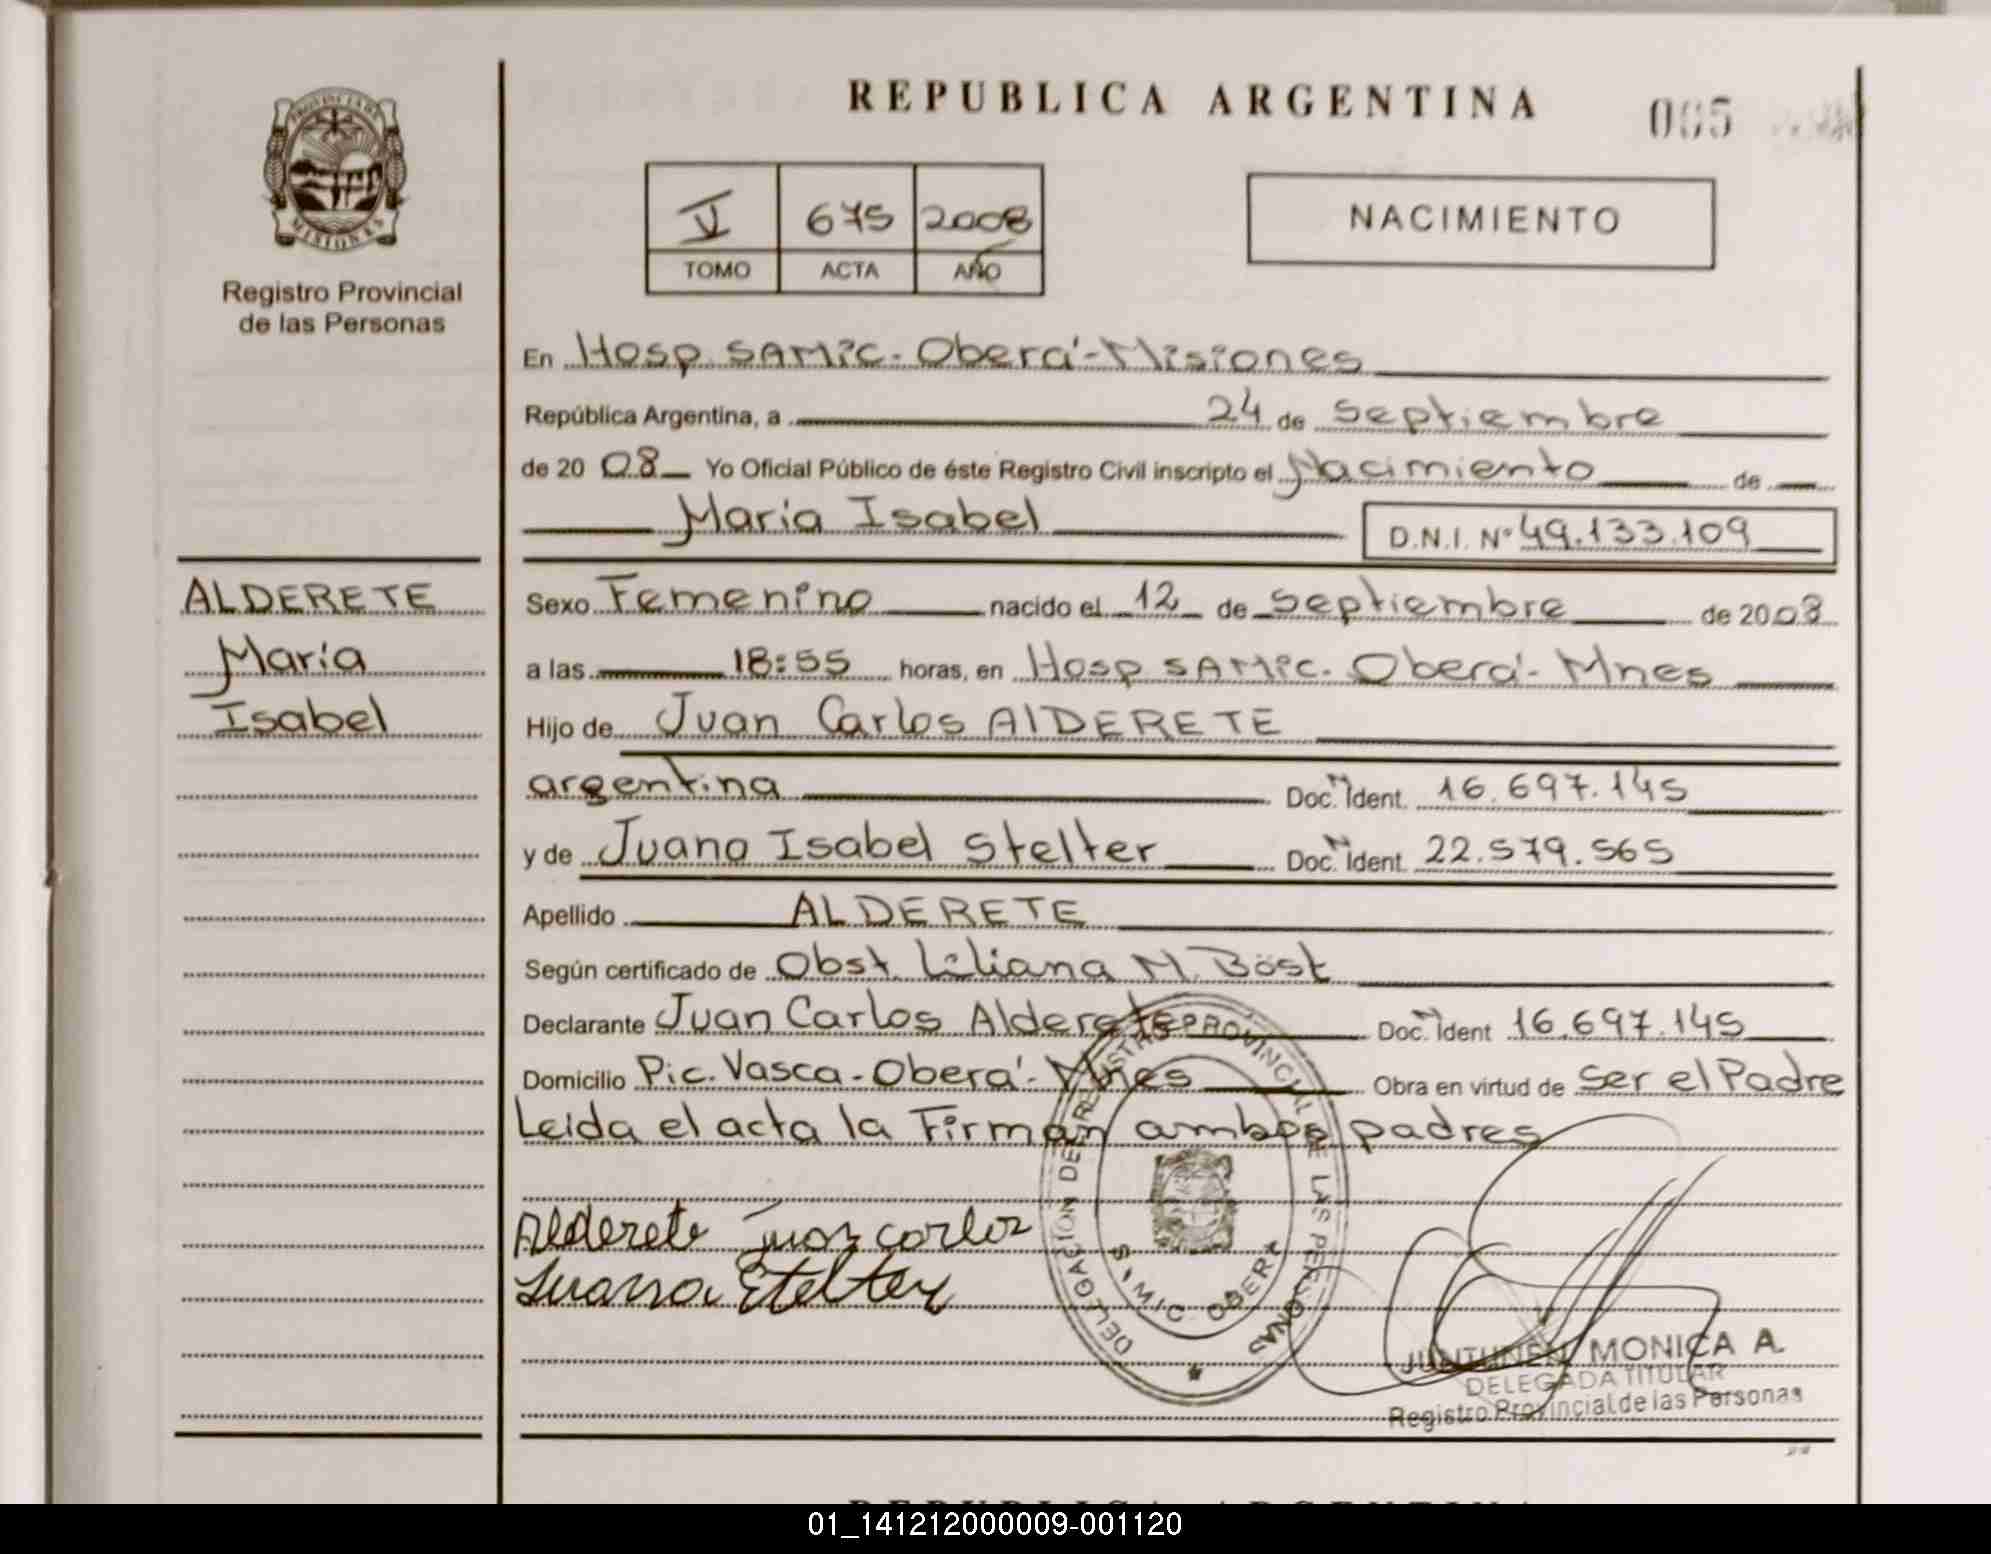 REPUBLICA ARGENTINA
065
PROVINCIA DE MISIONES
Registro Provincial
de las Personas
V 675 2008
TOMO ACTA AÑO
NACIMIENTO
En Hosp. SAMIC - Oberá - Misiones
República Argentina, a 24 de septiembre
de 20 08 Yo Oficial Público de éste Registro Civil inscripto el Nacimiento de
María Isabel D.N.I. Nº 49.133.109
ALDERETE
María
Isabel
Sexo Femenino nacido el 12 de septiembre de 2008
a las 18:55 horas, en Hosp SAMIC - Oberá - Mnes
Hijo de Juan Carlos AlDERETE
argentina Doc. Ident. 16.697.145
y de Juana Isabel Stelter Doc. Ident. 22.579.565
Apellido ALDERETE
Según certificado de Obst. Liliana M. Böst
Declarante Juan Carlos Alderete Doc. Ident 16.697.145
Domicilio Pic. Vasca - Oberá - Mnes Obra en virtud de ser el Padre
Leida el acta la Firman ambos padres
Alderete Juan Carlos
Juana Stelter
DELEGACION DE REGISTRO PROVINCIAL DE LAS PERSONAS
SAMIC OBERA
JUNTUNEN MONICA A.
DELEGADA TITULAR
Registro Provincial de las Personas
REPUBLICA ARGENTINA
01_141212000009-001120